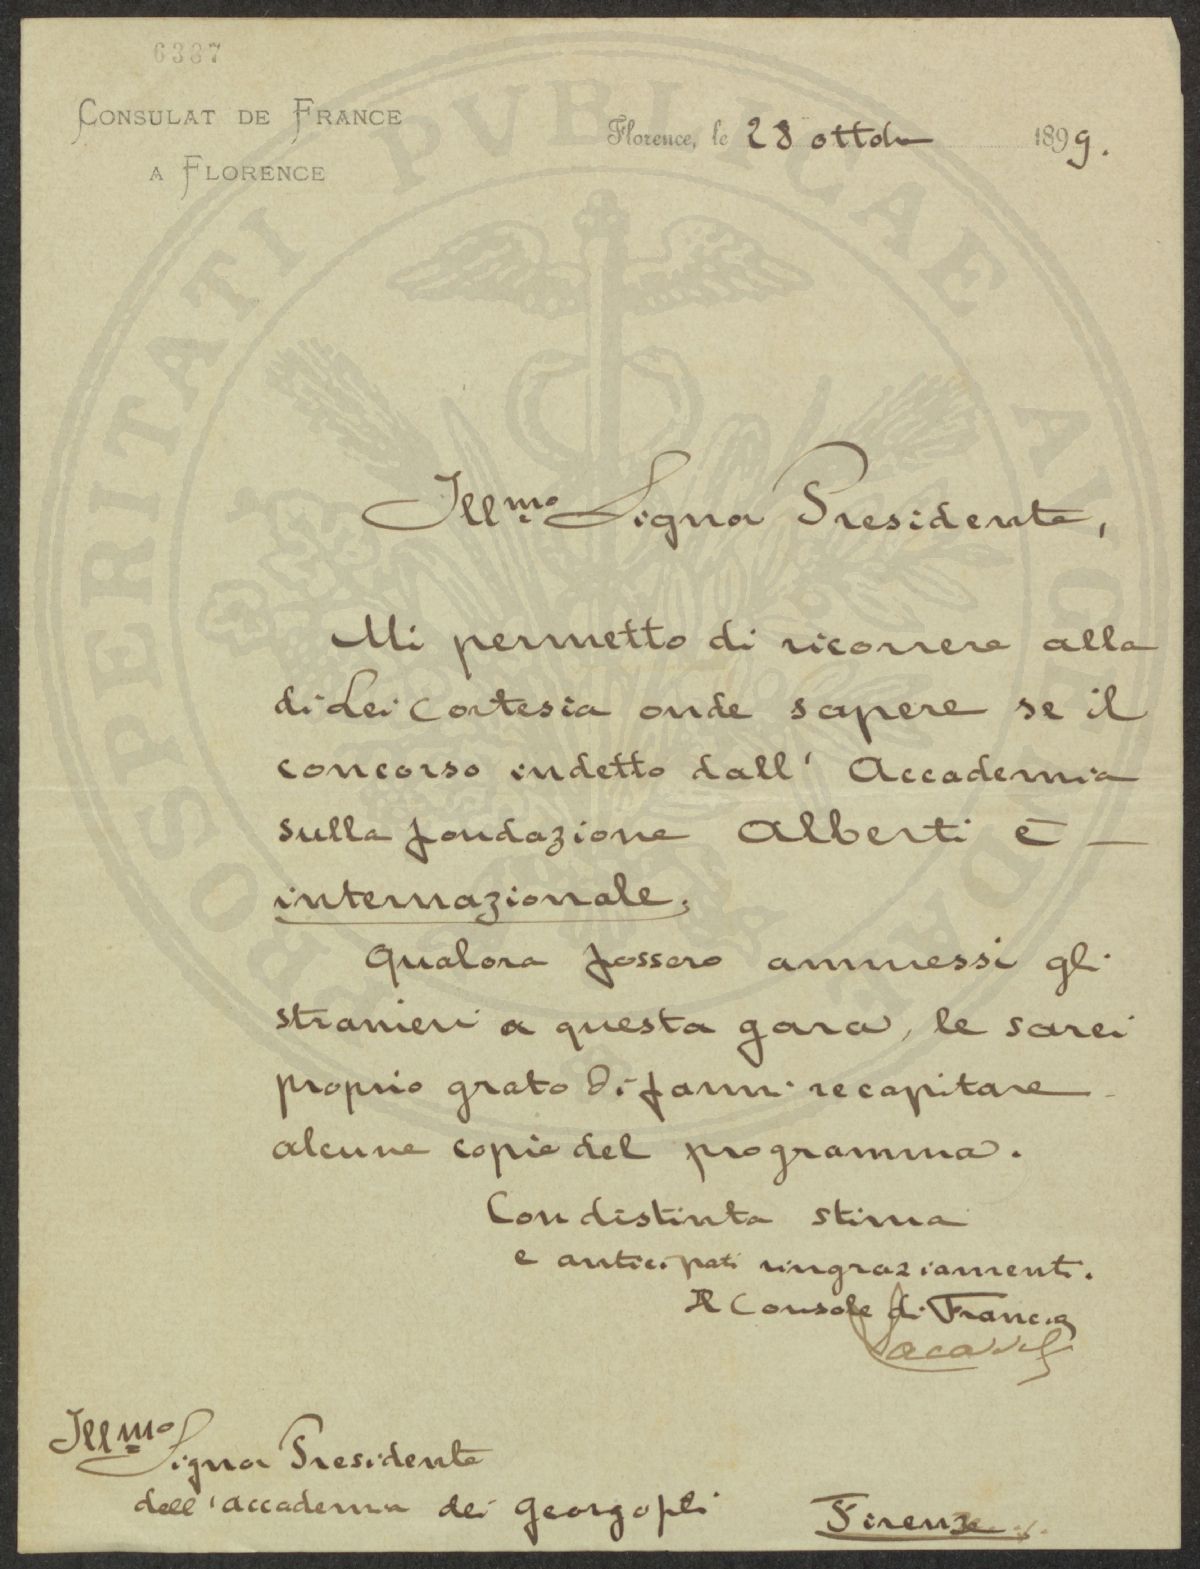 6387
CONSULAT DE FRANCE
A FLORENCE
Florence, le 28 ottobre 1899.
PROSPERITATI PVBLICAE AVGENDAE
Ill.mo Signor Presidente,
Mi permetto di ricorrere alla
di Lei cortesia onde sapere se il
concorso indetto dall' Accademia
sulla fondazione Alberti è
internazionale.
Qualora fossero ammessi gli
stranieri a questa gara, le sarei
proprio grato di farmi recapitare
alcune copie del programma.
Con distinta stima
e anticipati ringraziamenti.
Il Console di Francia
Ill.mo
Signor Presidente
dell'accademia dei Georgofili
Firenze